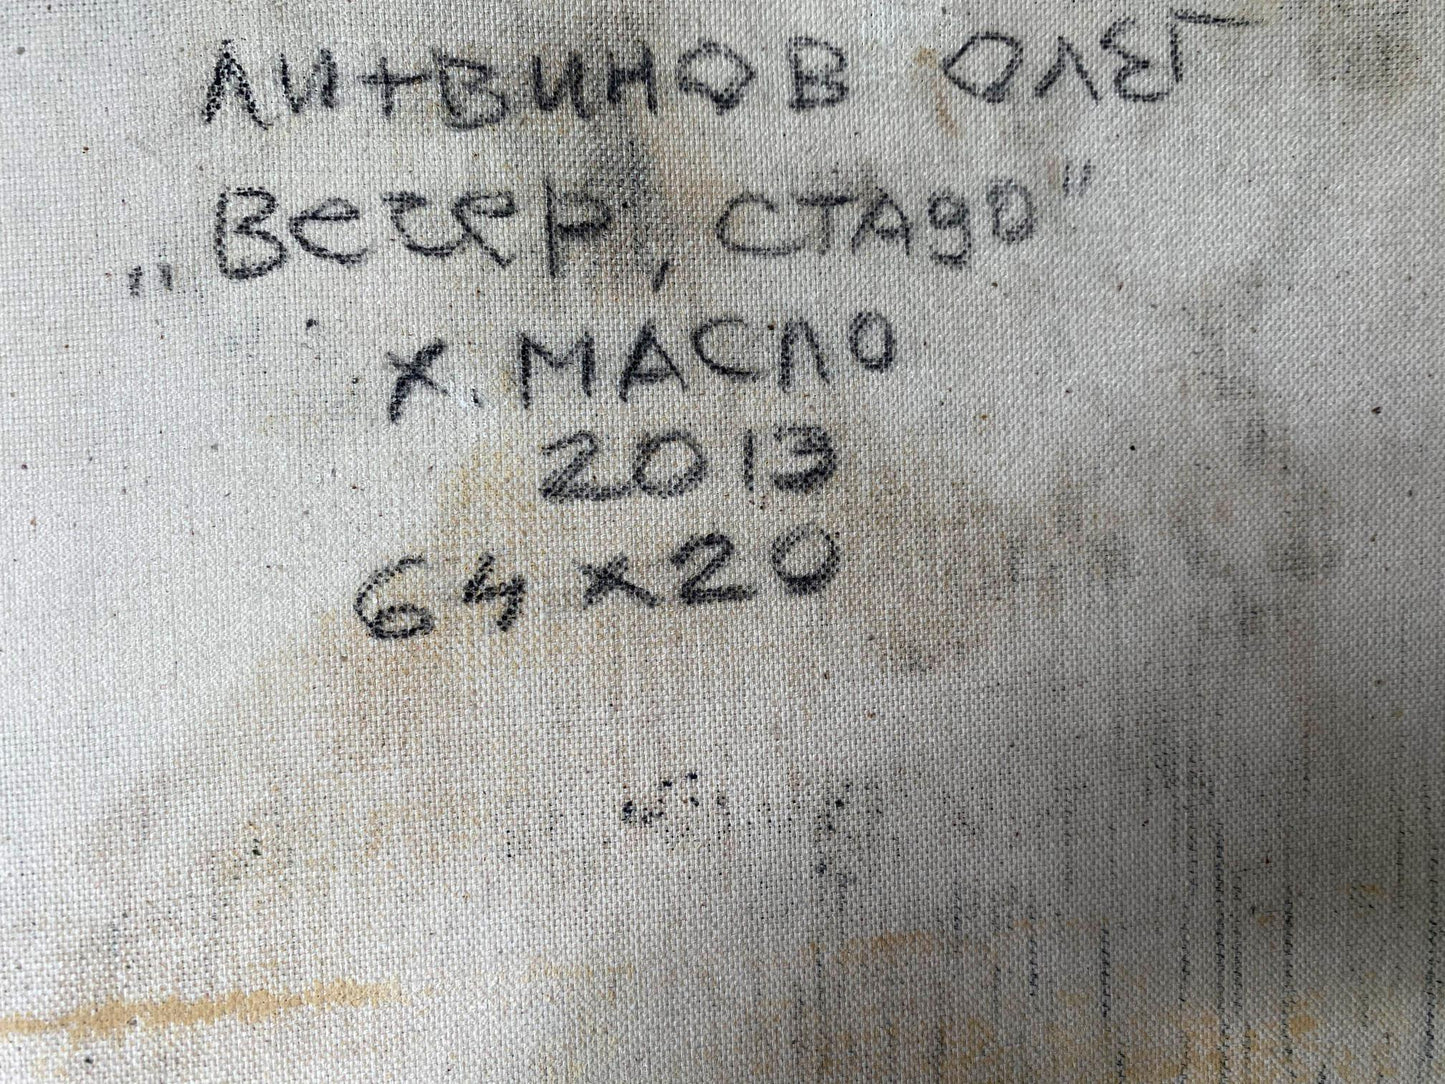 ЛИТВИНОВ ОЛЕГ
„Вечер, СТАДО"
Х. МАСЛО
2013
64x20